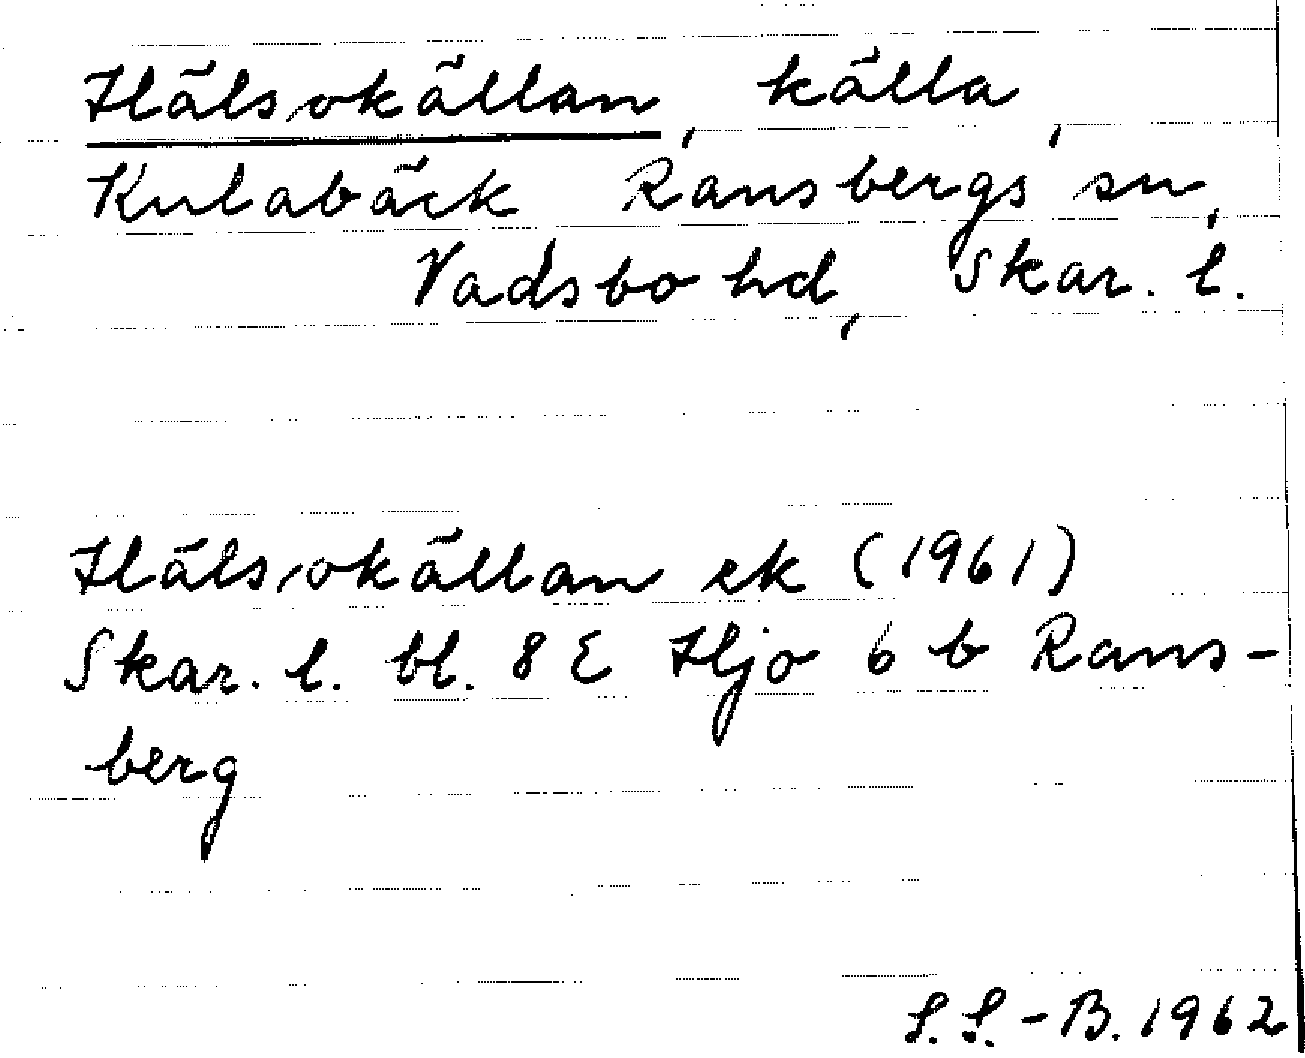 Hälsokällan, källa,
Kulabäck Ransbergs sn,
Vadsbo hd, Skar. l.
Hälsokällan ek (1961)
Skar. l. bl. 8 E Hjo 6 b Rans-
berg
S.S.-B. 1962